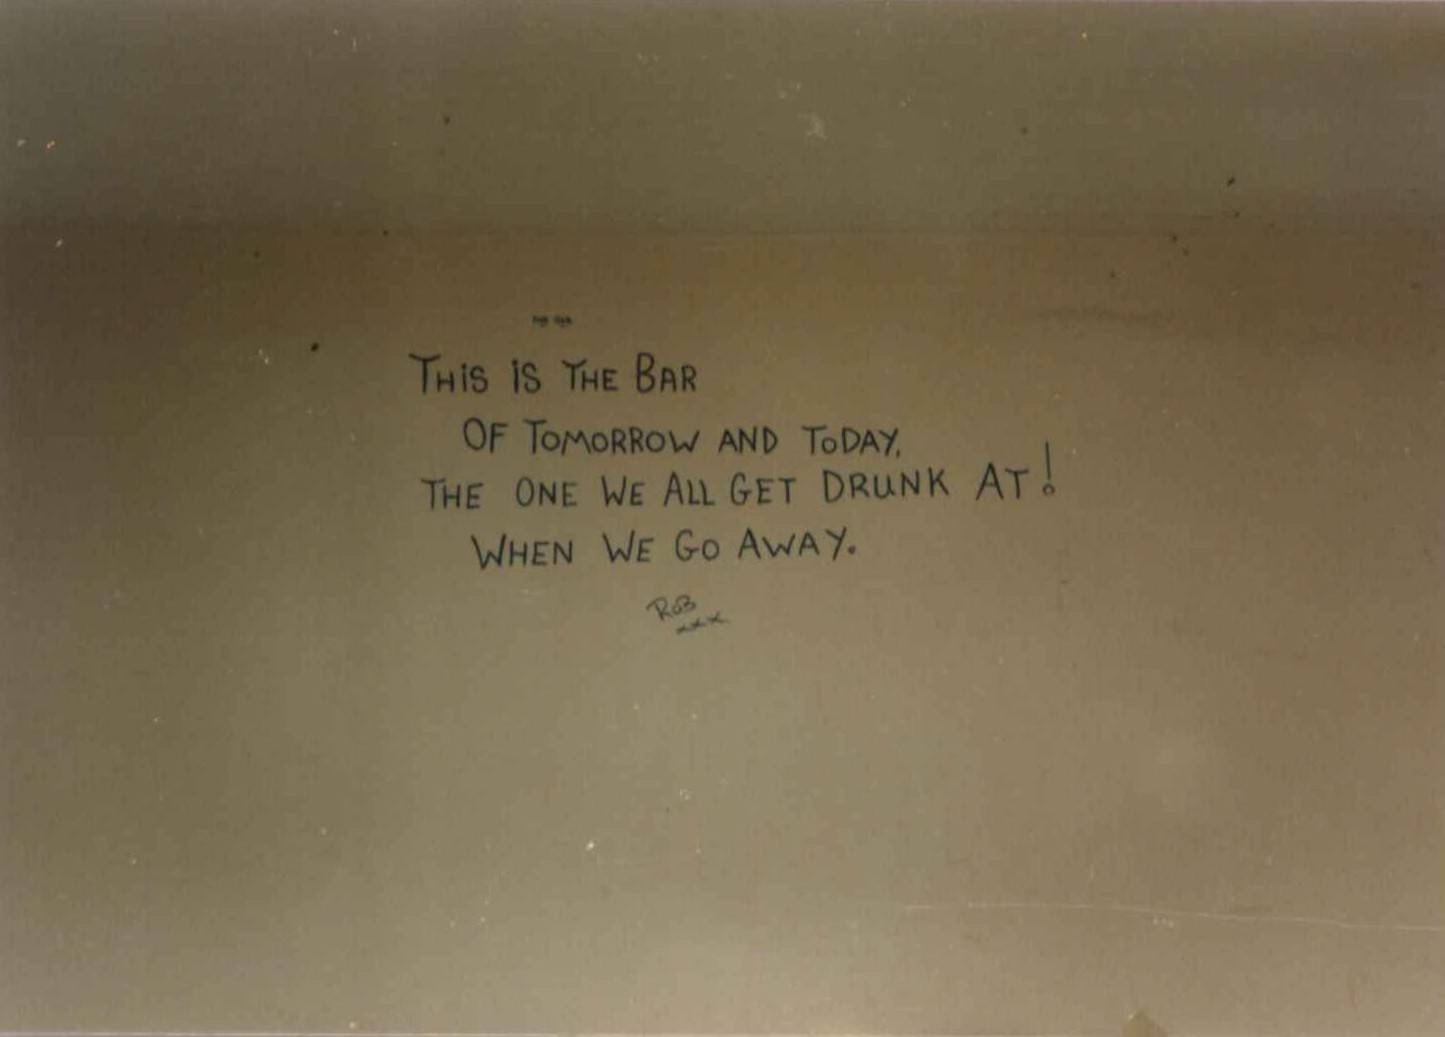 THiS iS THE BAR
OF TOMORROW AND ToDAY,
THE ONE WE ALL GET DRUNK AT!
WHEN WE Go AWAY.
RoB
xxx